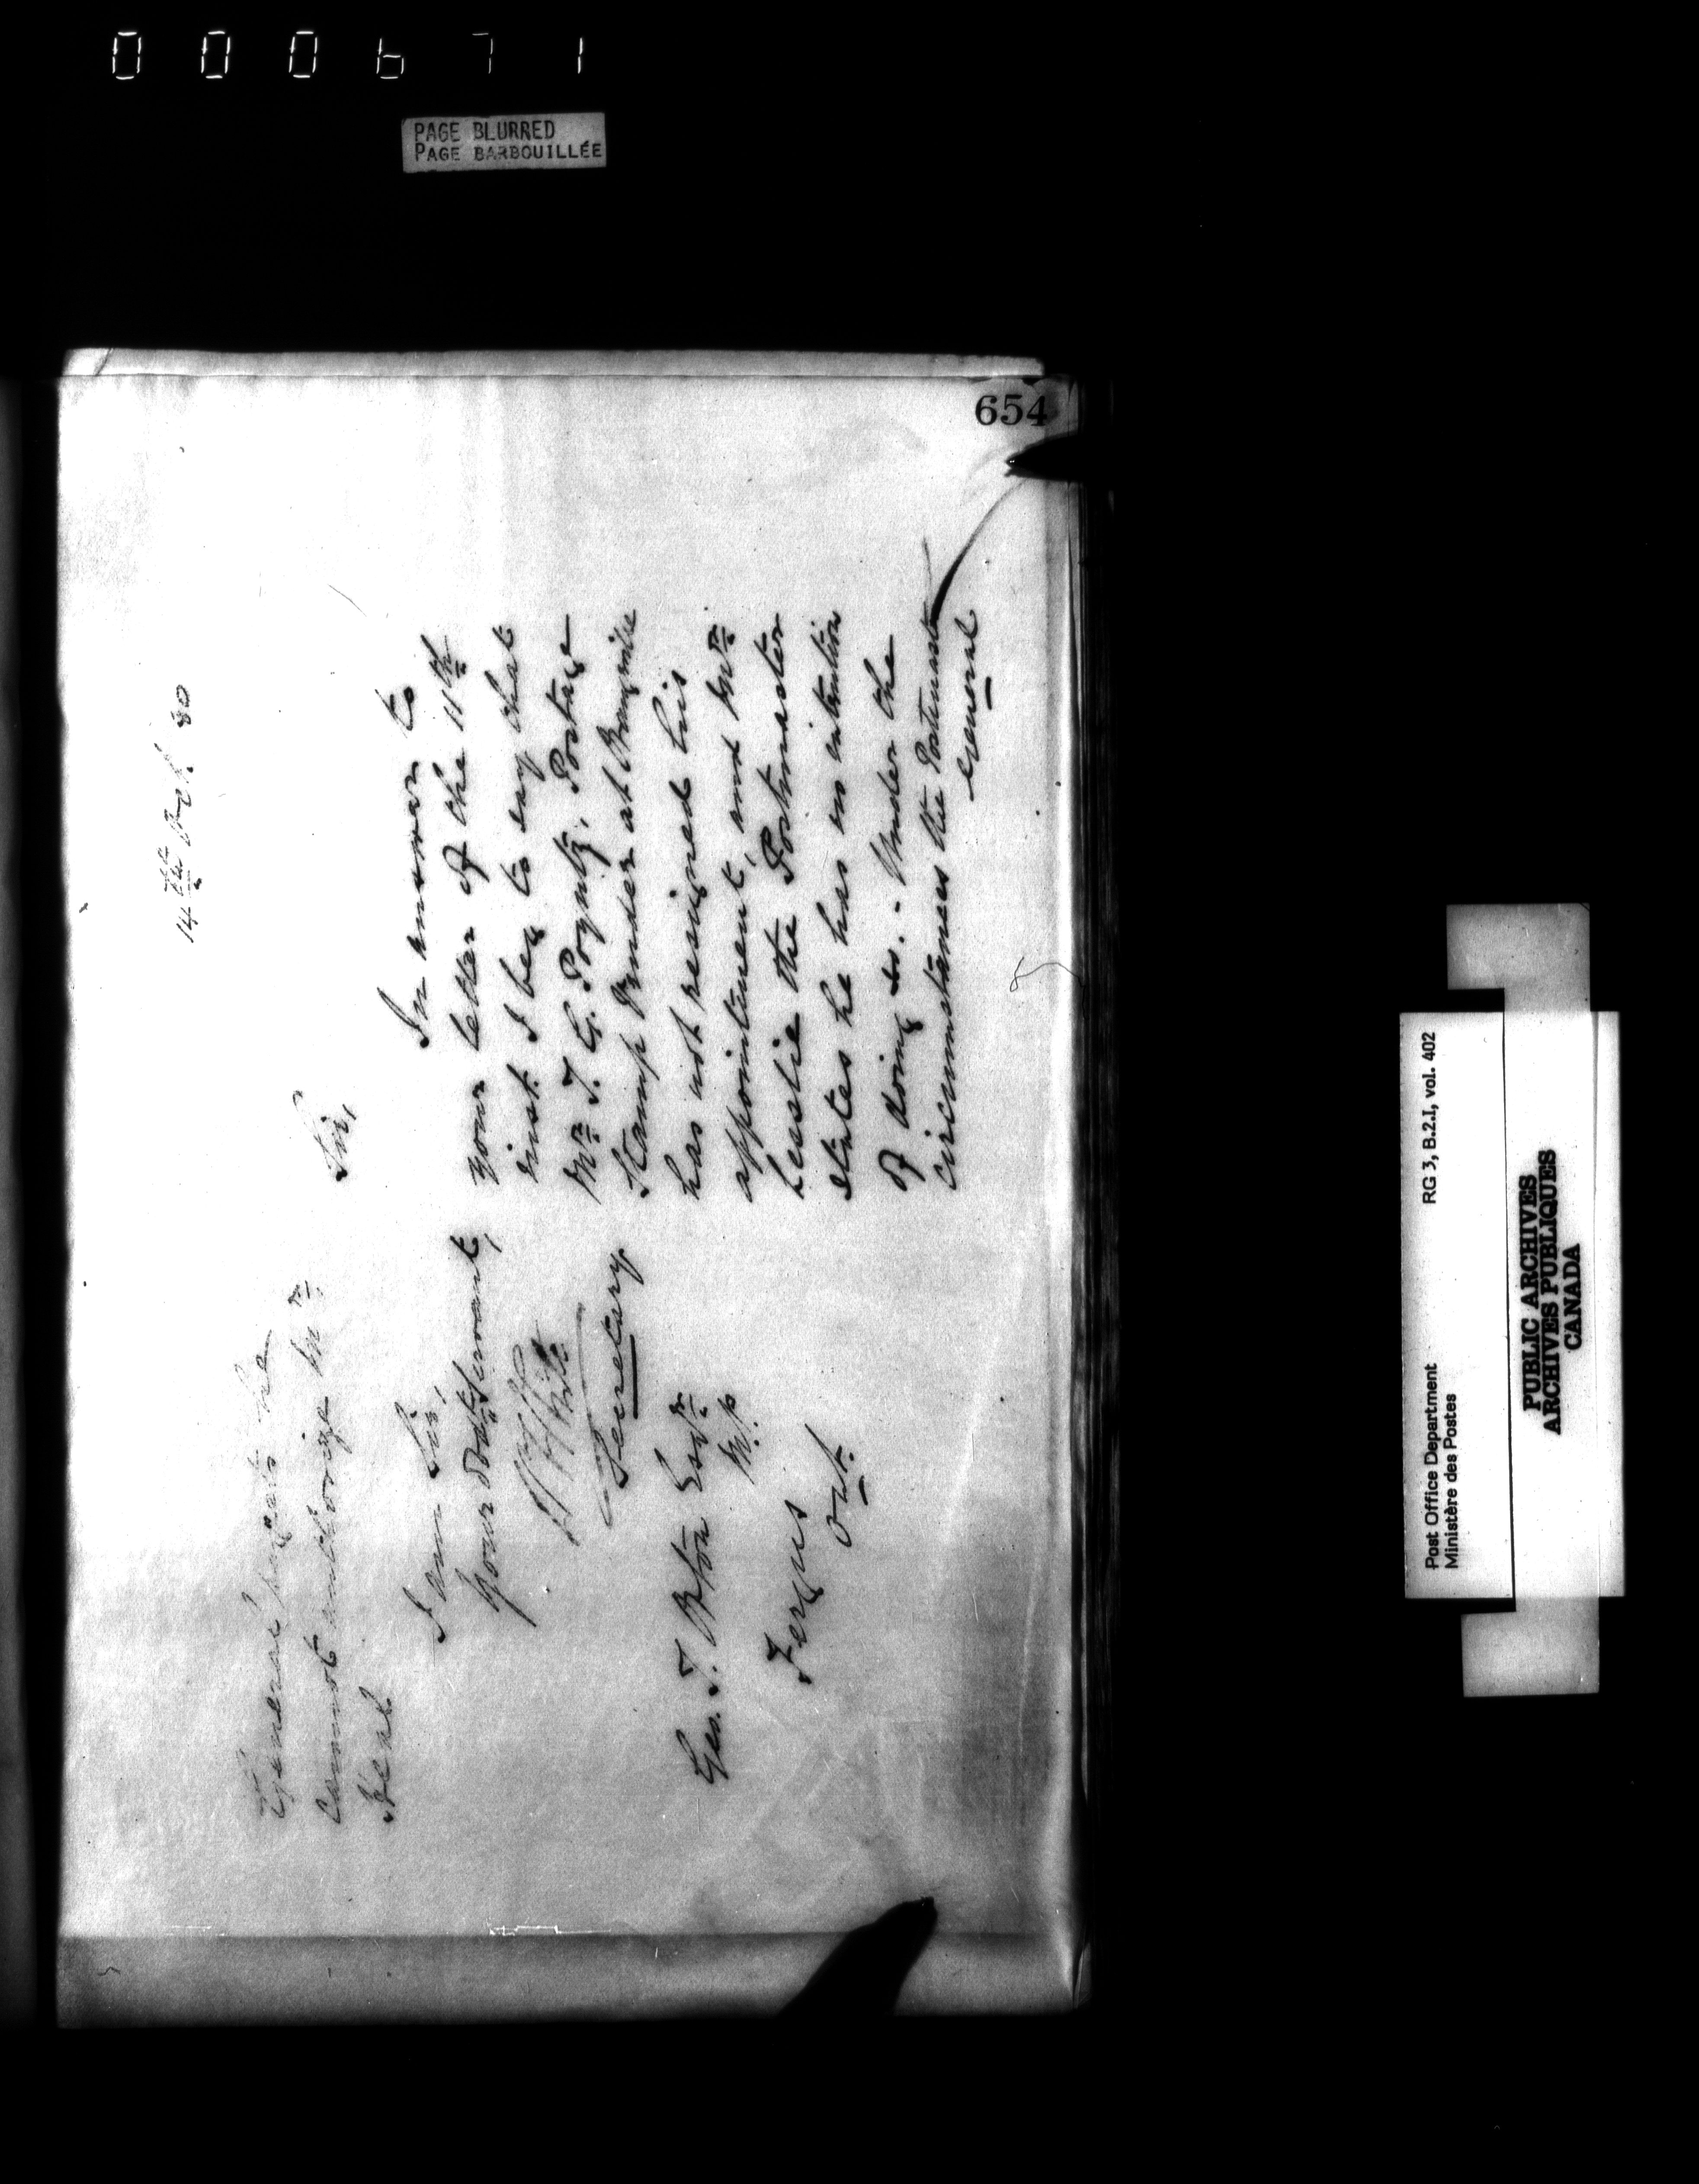 000671
PAGE BLURRED
PAGE BARBOUILLÉE
654
14th Feb. 80
Sir,
In answer to
your letter of the 11th
inst. I beg to say that
Mr. T. G. Poyntz, Postage
Stamp Vender at Orangeville
has not resigned his
appointment, and Mr.
Leslie the Postmaster
states he has no intention
of doing so. - Under the
circumstances the Postmaster
General
General regrets he
cannot authorize Mr.
I am Sir,
Your Obdt Servant,
Secretary.
Geo. T. Orton Esqr.
M.P.
Fergus
Ont.
Post Office Department
Ministère des Postes
RG 3, B.2.I, vol. 402
PUBLIC ARCHIVES
ARCHIVES PUBLIQUES
CANADA